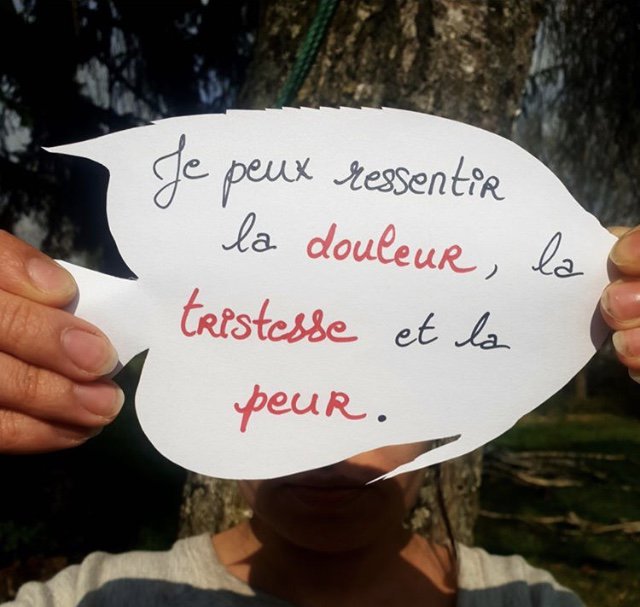 Je peux ressentir
la douleur, la
tristesse et la
peur.